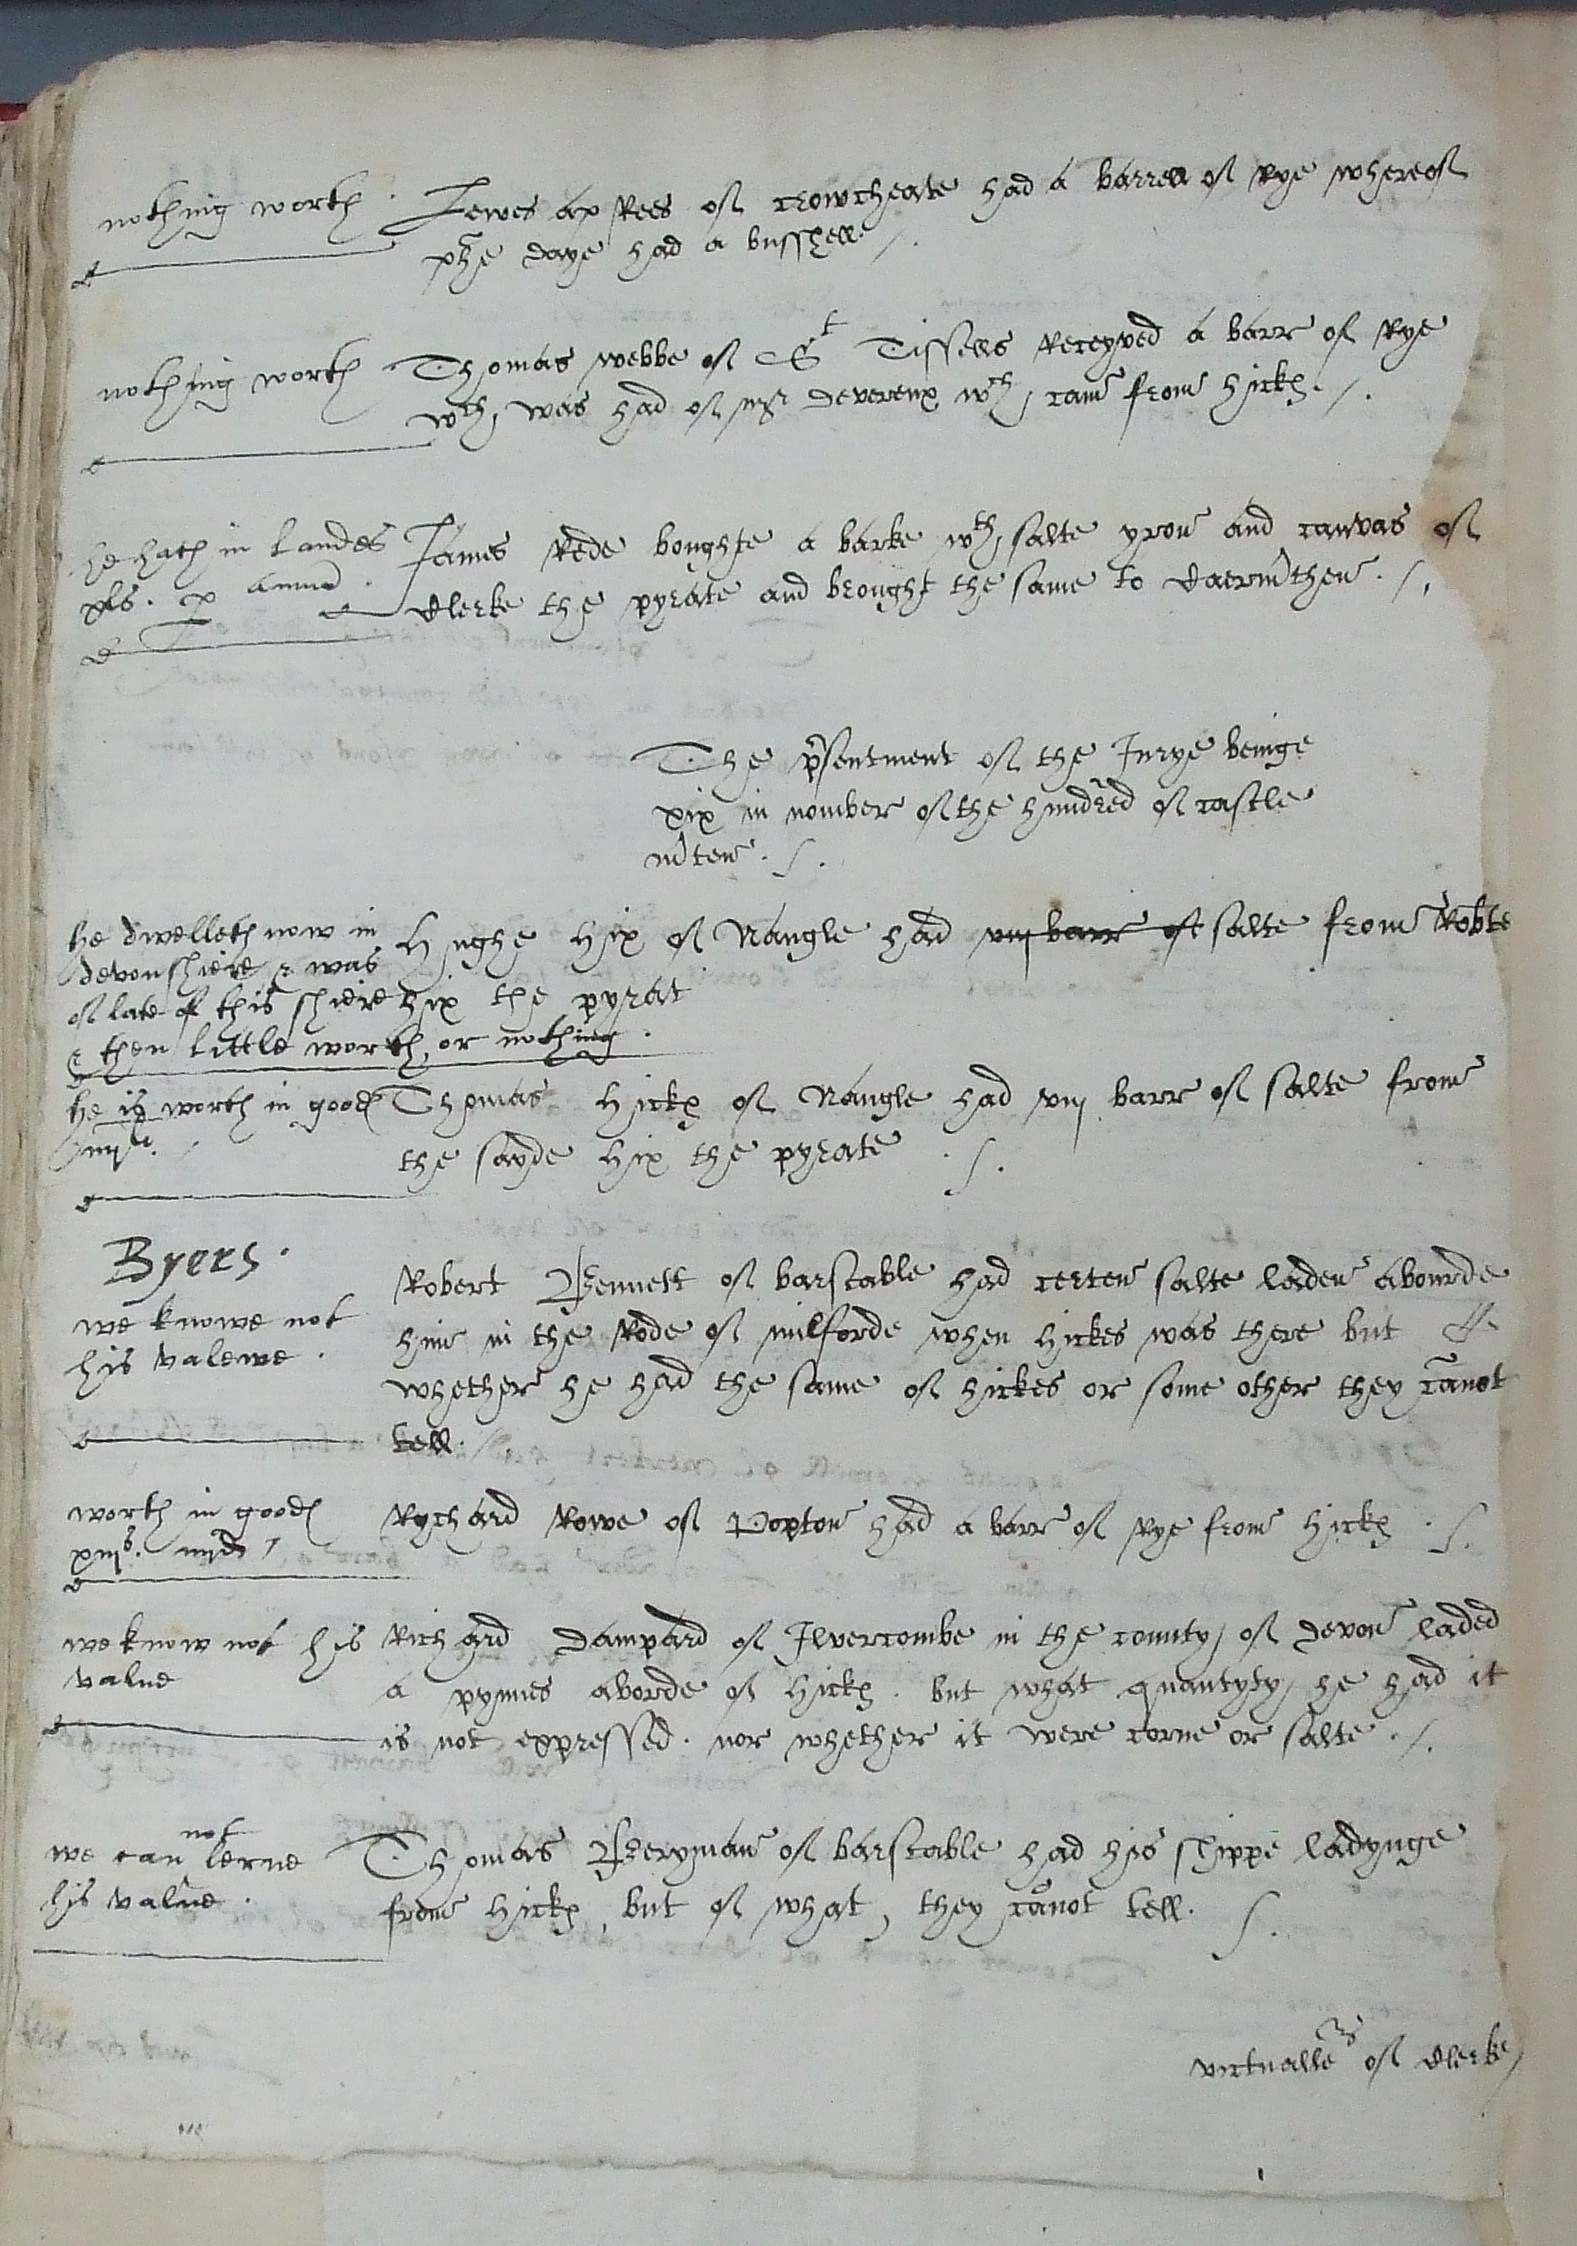 nothing worth . Lewes ap Rees of crowcheate had a barrell of Rye whereof
phe Daye had a busshell /.
nothing worth Thomas webbe of St Tissells Receyved a barr of Rye
wch was had of mr Devereux wch came from hickꝭ /.
he hath in landes James Rede boughte a barke wth salte yron and canvas of
xls. p annu . Clerke the pyrate and brought the same to Caermthen . /.
The psentment of the Jurye beinge
xix in nomber of the hundred of castle
mten . /.
he dwelleth now in Hughe Hix of Nangle had viij barr of salte from Robte
devonshiere & was
of late of this shiere hix the pyrat
& then little worth or nothing .
he is worth in goodꝭ Thomas Hickꝭ of Nangle had viij barr of salte from
iiijli. the sayde Hix the pyrate . /.
Byers .
Robert Bennett of barstable had certen salte laden abourde
we knowe not
him in the Rode of milforde when hickes was there but
his valewe .
whether he had the same of hickes or some other they canot
tell. /.
worth in goodꝭ Rychard Rowe of Popton had a barr of Rye from Hickꝭ . /.
xiijs. iiijd /
we know not his Richard Dampard of Ilvercombe in the county of Devon laded
value a pynnes aborde of Hickꝭ . but what quantyty he had it
is not expressed . nor whether it were corne or salte . /.
we can not lerne Thomas Beryman of barstable had his shippe ladynge
his value . from Hickꝭ , but of what , they canot tell . /.
victualles of Clerke